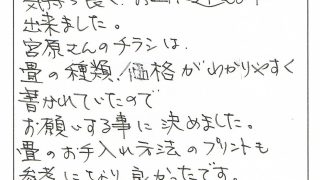 出来ました。
宮原さんのチラシは、
畳の種類、価格がわかりやすく
書かれていたので
お願いする事に決めました。
畳のお手入れ方法のプリントも
参考になり良かったです。